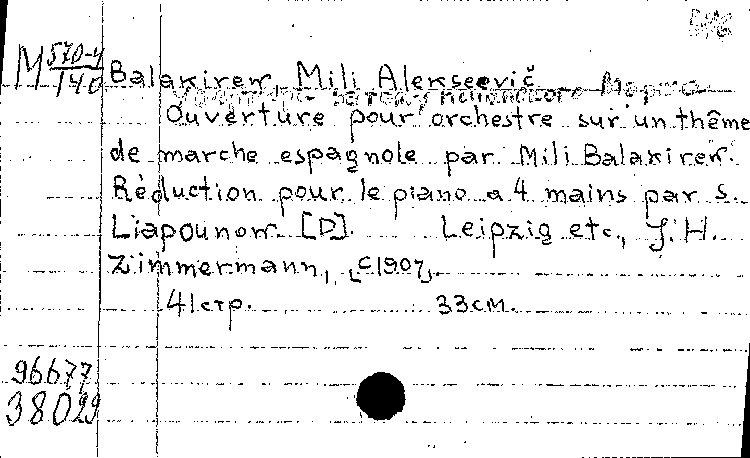 М 570-4/140
Balakirew, Mili Alekseevič
Увертюра на тему испанского марша
Ouverture pour orchestre sur un thême
de marche espagnole par Mili Balakirew.
Réduction pour le piano a 4 mains par S.
Liapounow. [D]. Leipzig etc., J. H.
Zimmermann, [c1907].
41 стр. 33 см.
96677
38029